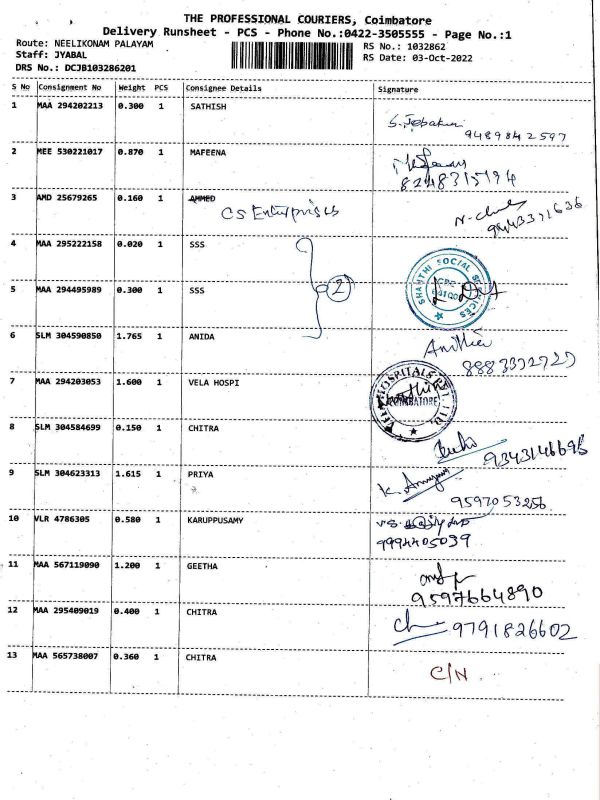 THE PROFESSIONAL COURIERS, Coimbatore
Delivery Runsheet - PCS - Phone No.:0422-3505555 - Page No.:1
Route: NEELIKONAM PALAYAM
RS No.: 1032862
Staff: JYABAL
RS Date: 03-Oct-2022
DRS No.: DCJB103286201
S No Consignment No Weight PCS Consignee Details Signature
1 MAA 294202213 0.300 1 SATHISH
9489842597
2 MEE 530221017 0.870 1 MAFEENA
8248315194
3 AMD 25679265 0.160 1 AHMED
CS Enterprises
9443371636
4 MAA 295222158 0.020 1 SSS
2
SHANTHI SOCIAL SERVICES
5 MAA 294495989 0.300 1 SSS
6 SLM 304590850 1.765 1 ANIDA
8883372727
7 MAA 294203053 1.600 1 VELA HOSPI
HOSPITALS PVT. LTD.
COIMBATORE
8 SLM 304584699 0.150 1 CHITRA
9343146695
9 SLM 304623313 1.615 1 PRIYA
9597053256
10 VLR 4786305 0.580 1 KARUPPUSAMY
9994405039
11 MAA 567119090 1.200 1 GEETHA
9597664890
12 MAA 295409019 0.400 1 CHITRA
9791826602
13 MAA 565738007 0.360 1 CHITRA
C/N